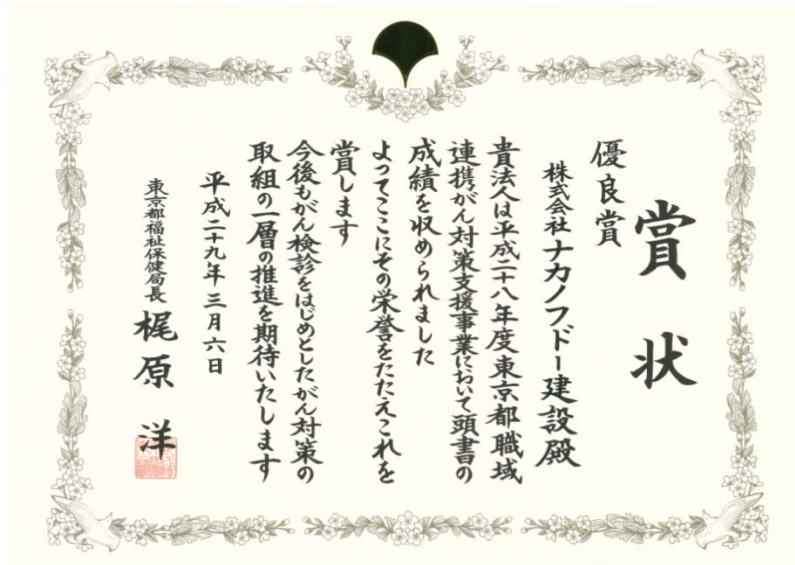 賞状
優良賞
株式会社ナカノフドー建設殿
貴法人は平成二十八年度東京都職域
連携がん対策支援事業において頭書の
成績を収められました
よってここにその栄誉をたたえこれを
賞します
今後もがん検診をはじめとしたがん対策の
取組の一層の推進を期待いたします
平成二十九年三月六日
東京都福祉保健局長 梶原 洋